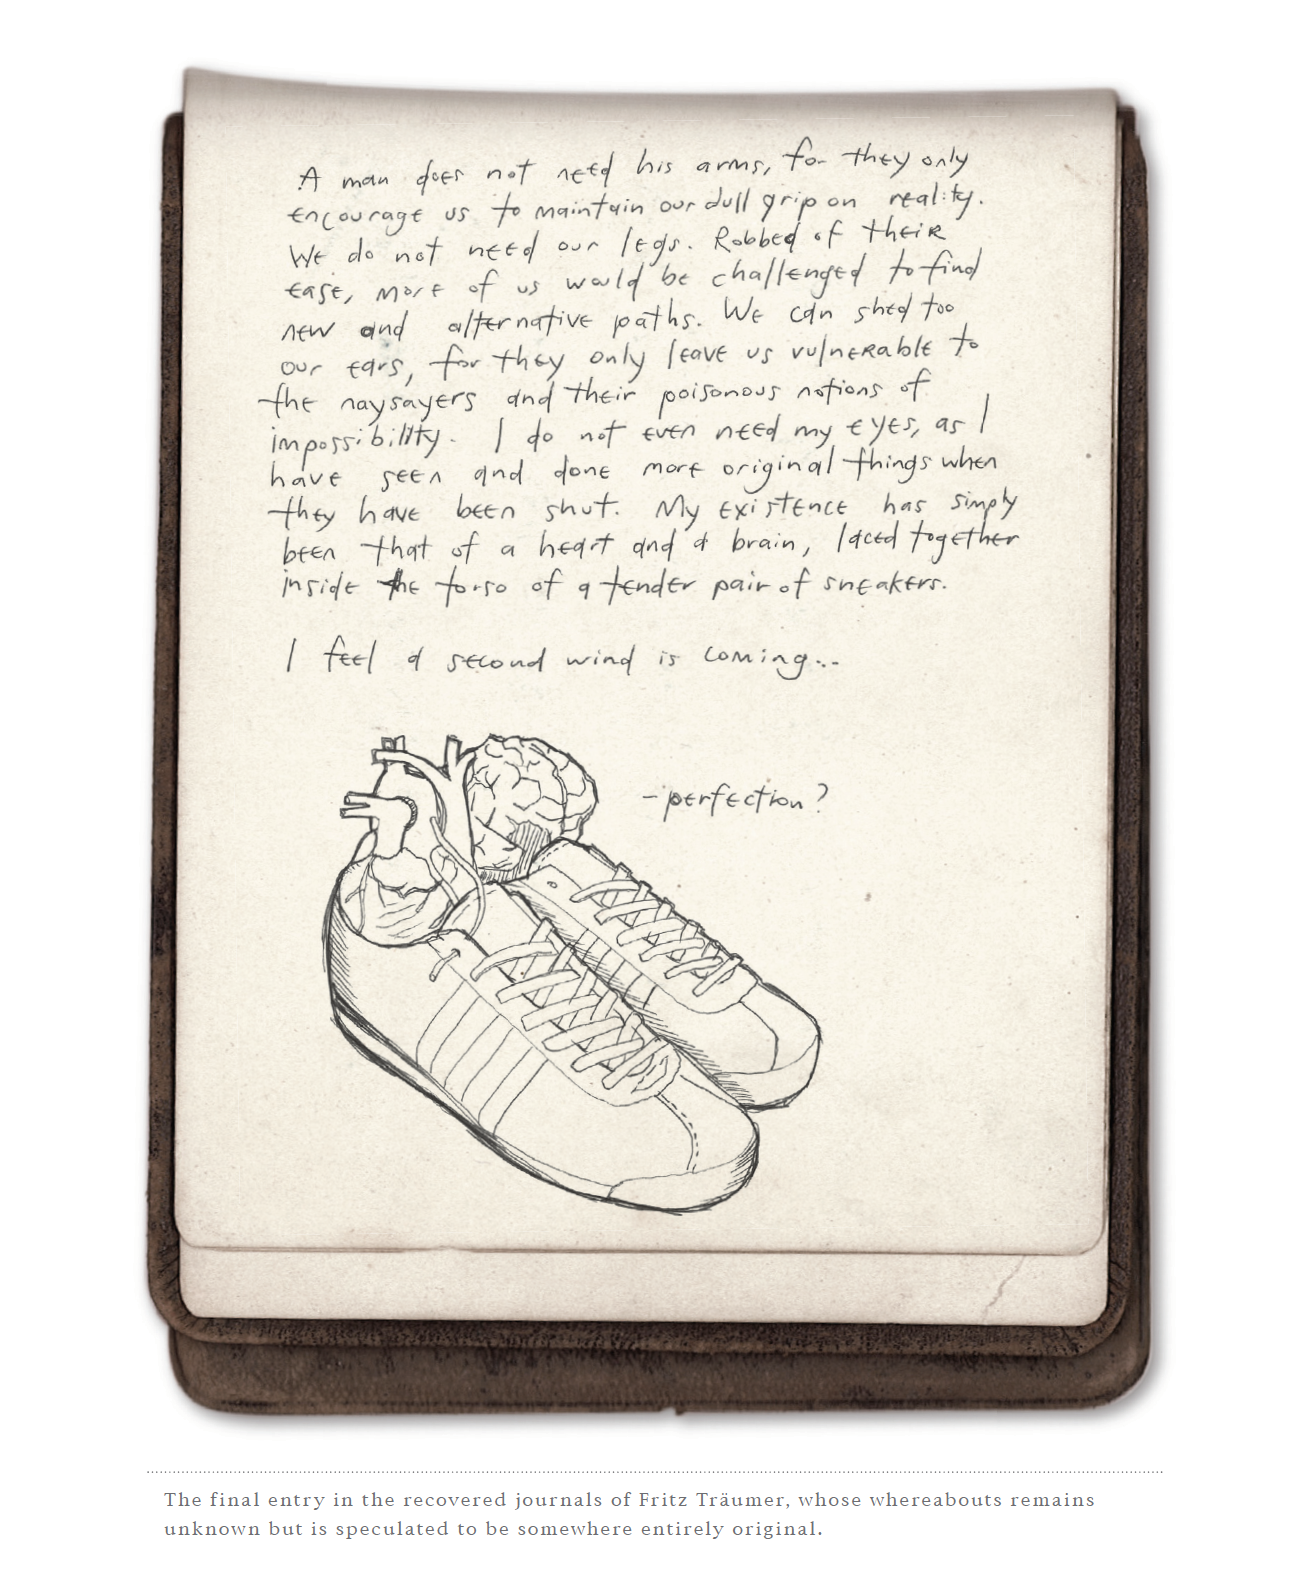 A man does not need his arms, for they only
encourage us to maintain our dull grip on reality.
We do not need our legs. Robbed of their
ease, more of us would be challenged to find
new and alternative paths. We can shed too
our ears, for they only leave us vulnerable to
the naysayers and their poisonous notions of
impossibility. I do not even need my eyes, as I
have seen and done more original things when
they have been shut. My existence has simply
been that of a heart and a brain, laced together
inside the torso of a tender pair of sneakers.
I feel a second wind is coming...
- perfection?
The final entry in the recovered journals of Fritz Träumer, whose whereabouts remains
unknown but is speculated to be somewhere entirely original.